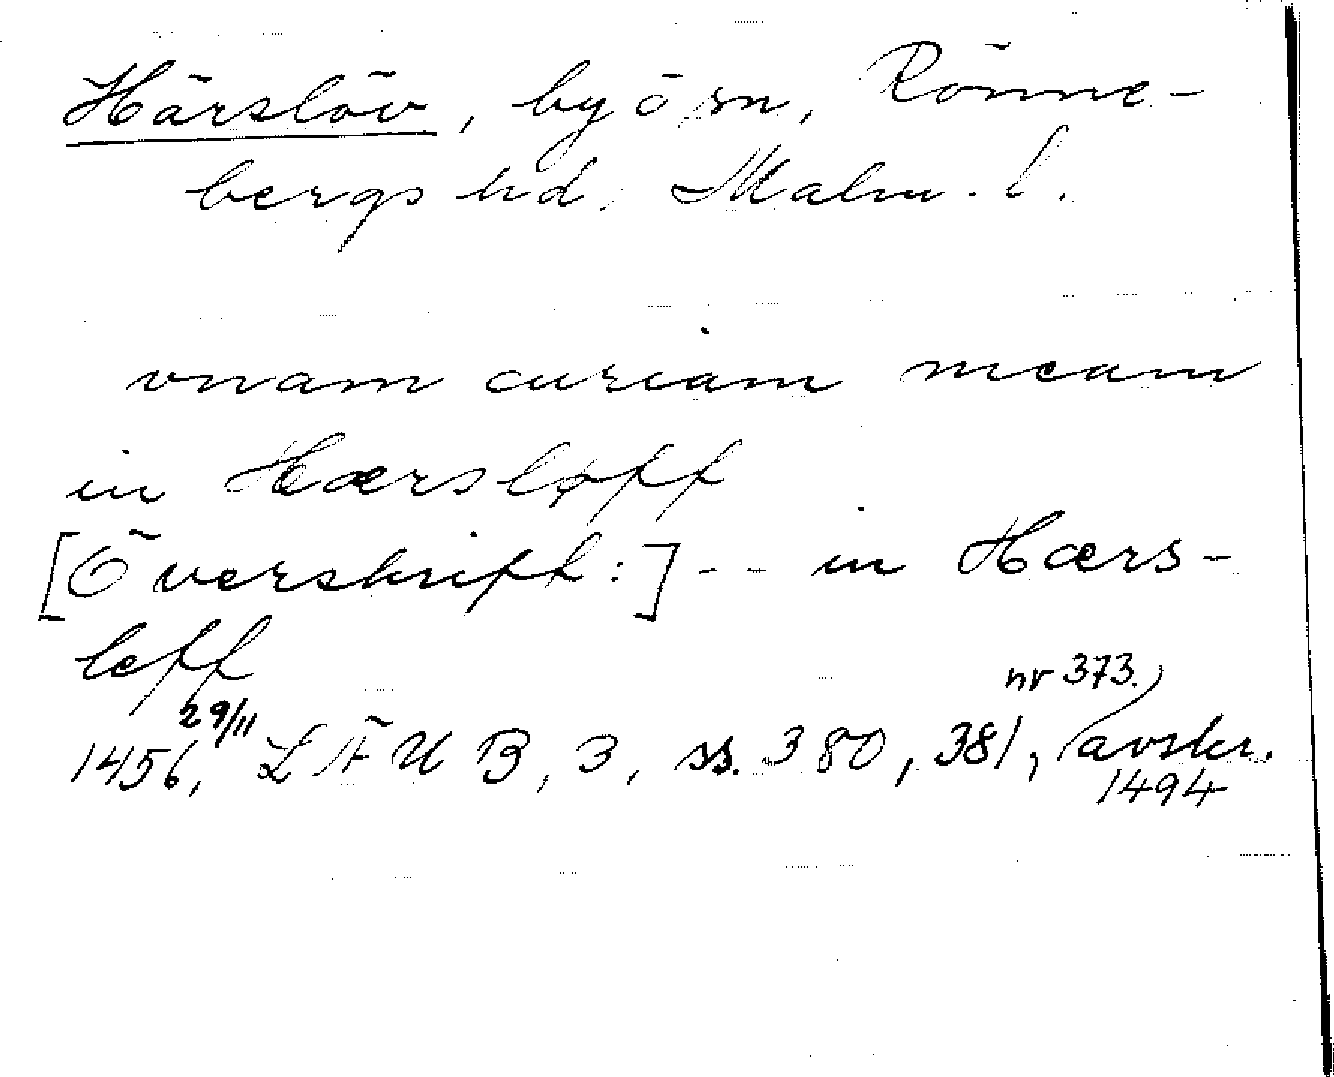 Härslöv, by o sn, Rönne-
bergs hd, Malm. l.
vnam curiam meam
in Hærsløff
[Överskrift:] - - in Hærs-
leff
nr 373.
1456, 29/11 LÄUB, 3, ss. 380, 381, avskr.
1494